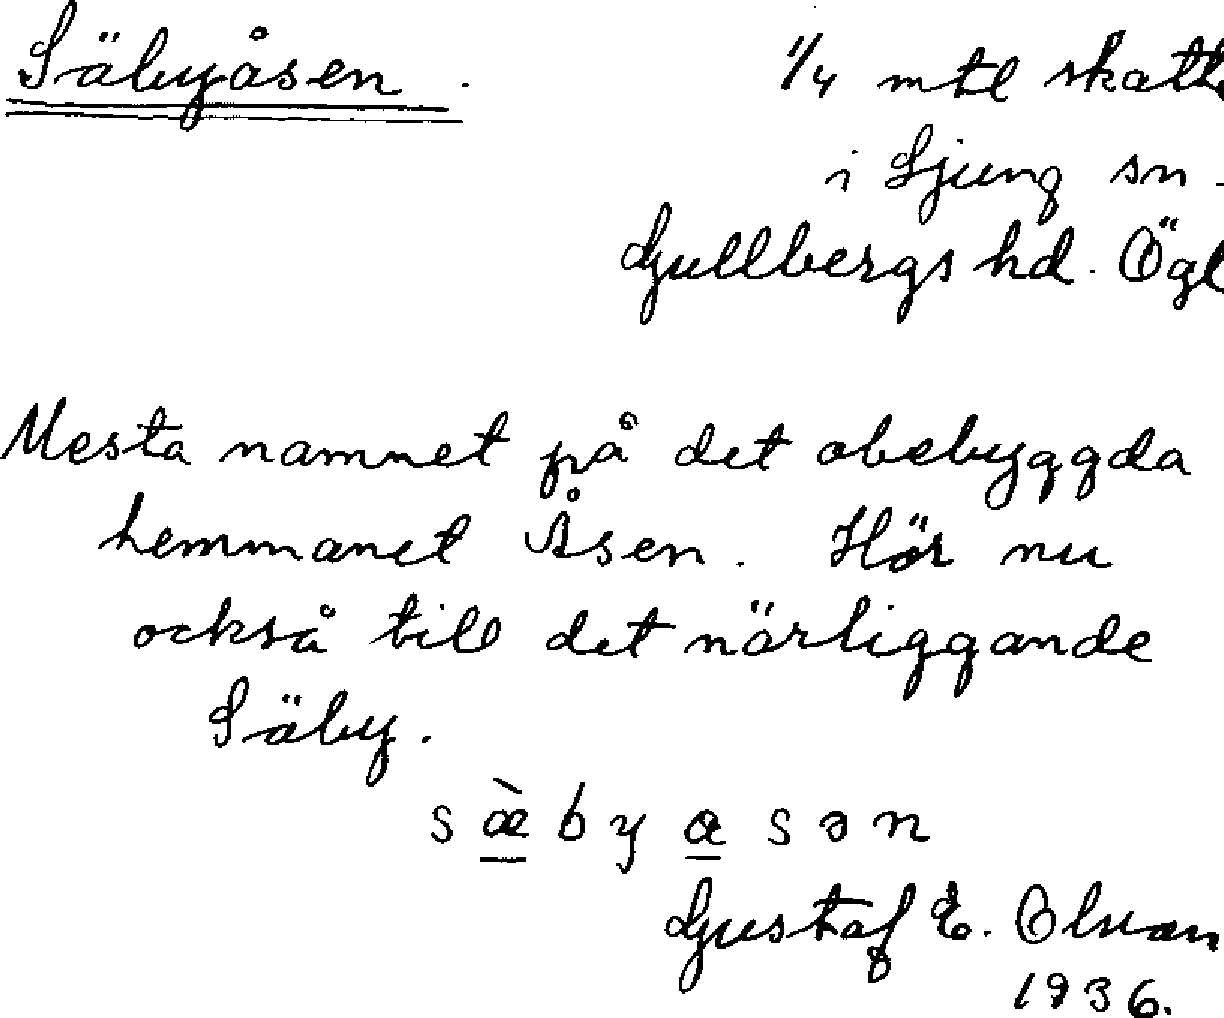 Säbyåsen. 1/4 mtl skatte
i Ljung sn.
Gullbergs hd. Ögl
Mesta namnet på det obebyggda
hemmanet Åsen. Hör nu
också till det närliggande
Säby.
s æ̀ b y a s ə n
Gustaf E. Olsson
1936.